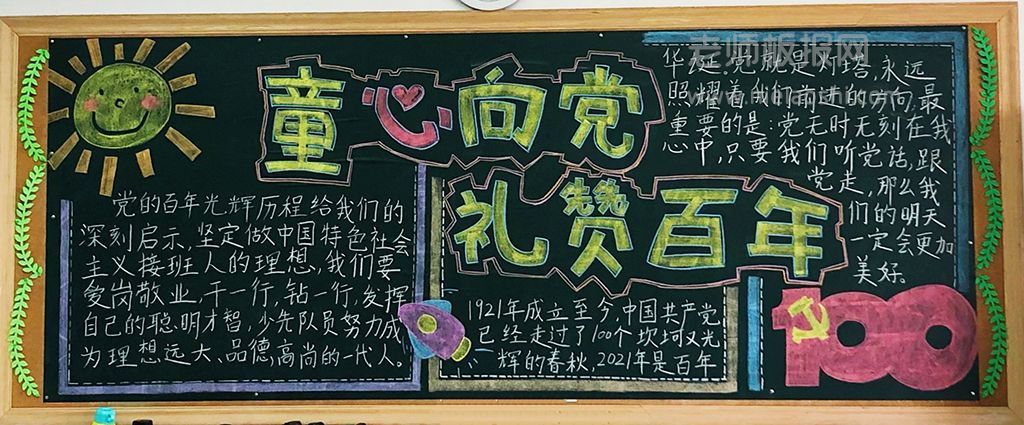 童心向党
礼赞百年
党的百年光辉历程给我们的
深刻启示,坚定做中国特色社会
主义接班人的理想,我们要
爱岗敬业,干一行,钻一行,发挥
自己的聪明才智,少先队员努力成
为理想远大、品德高尚的一代人。
1921年成立至今,中国共产党
已经走过了100个坎坷又光
辉的春秋,2021年是百年
华诞。党就是灯塔,永远
照耀着我们前进的方向,最
重要的是:党无时无刻在我
心中,只要我们听党话,跟
党走,那么我
们的明天
一定会更加
美好。
100
老师板报网